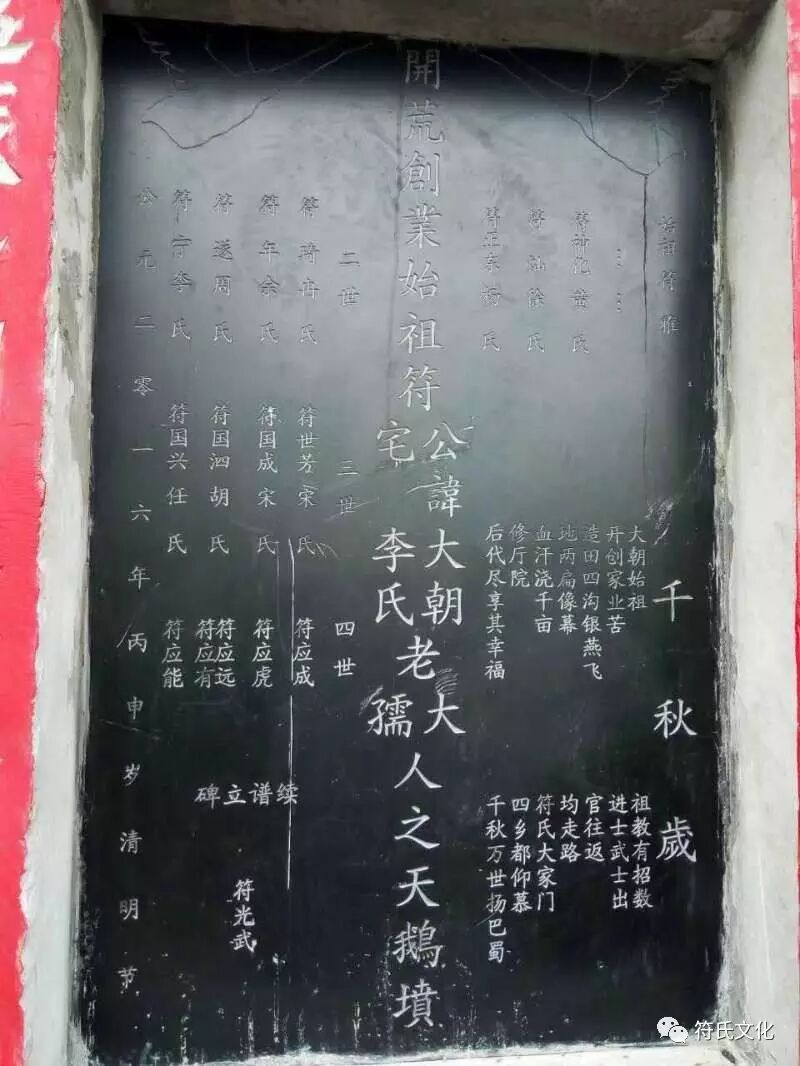 始祖符雅
千秋歲
……
符神化黄氏
符汕徐氏
符正东杨氏
大朝始祖
开创家业苦
造田四沟银燕飞
地两扁像幕
血汗浇千亩
修厅院
后代尽享其幸福
祖教有招数
进士武士出
官往返
均走路
符氏大家门
四乡都仰慕
千秋万世扬巴蜀
開荒創業始祖符公諱大朝老大人之天鵝墳
宅李氏孺
二世
三世
四世
符琦冉氏
符世芳宋氏
符应成
符年余氏
符国成宋氏
符应虎
符遂周氏
符国泗胡氏
符应远
符应有
符宁李氏
符国兴任氏
符应能
续谱立碑
符光武
公元二零一六年丙申岁清明节
符氏文化